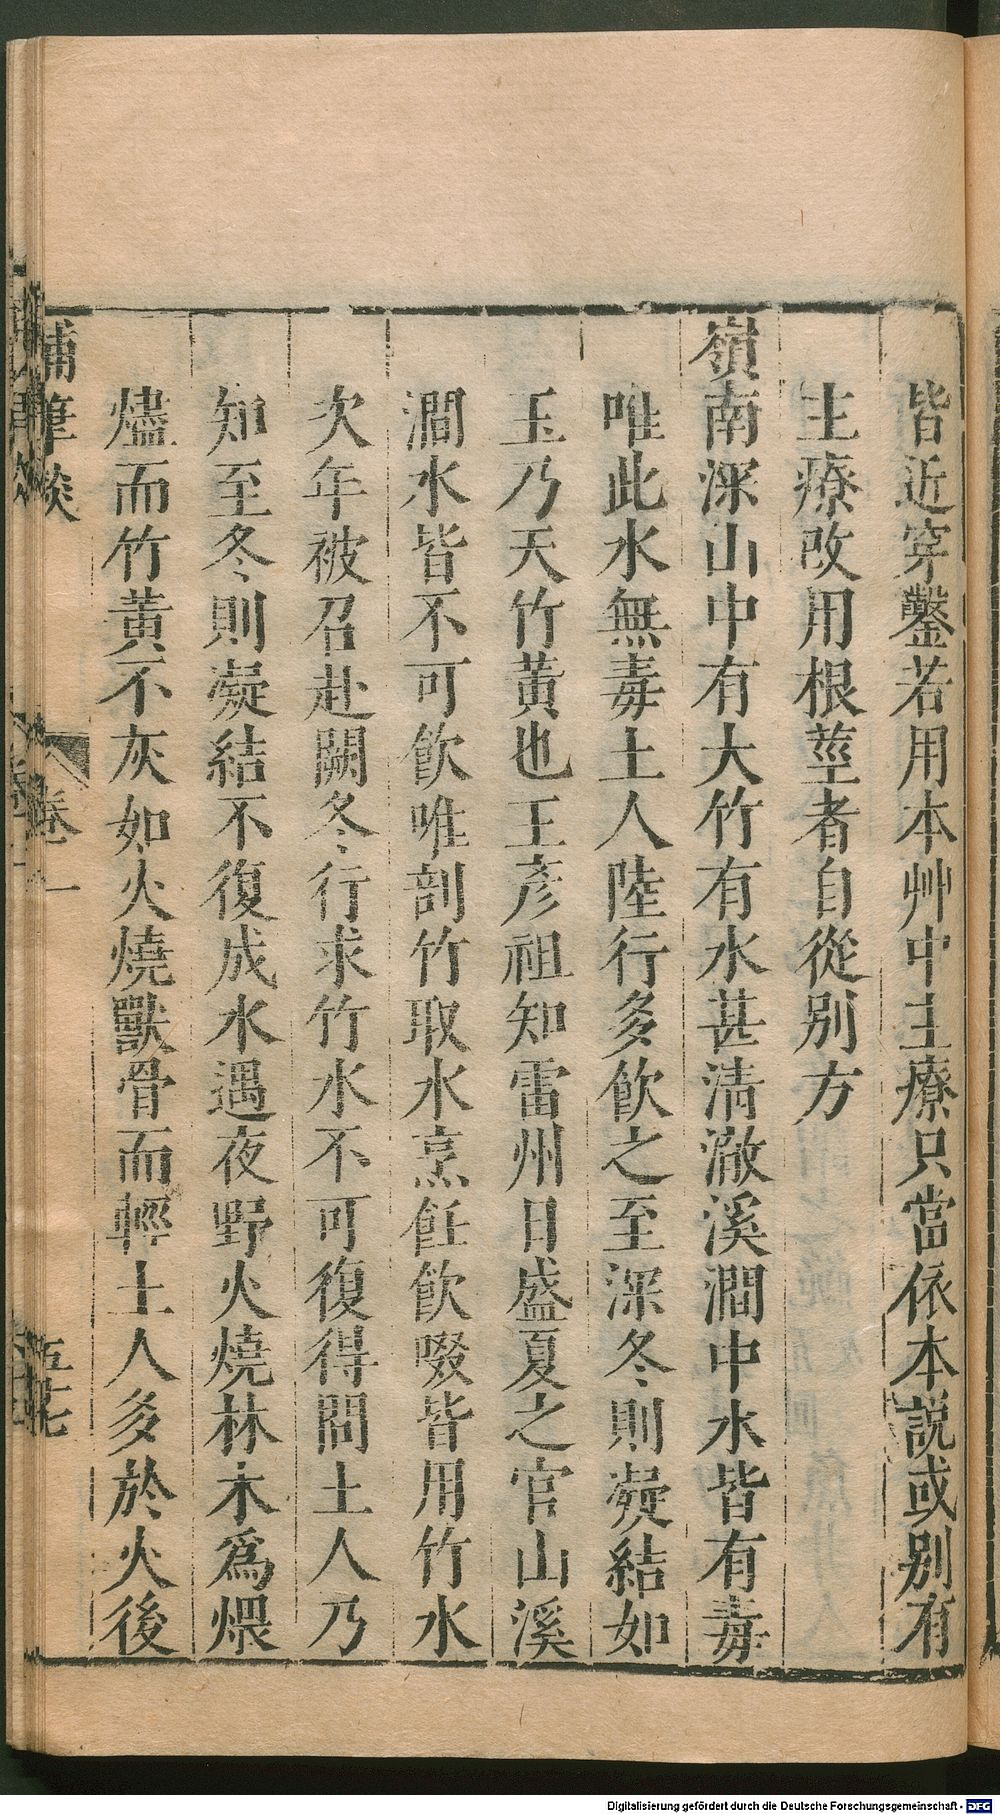 皆近穿鑿若用本艸中主療只當依本説或别有
主療改用根莖者自從别方
嶺南深山中有大竹有水甚清澈溪澗中水皆有毒
唯此水無毒土人陸行多飲之至深冬則凝結如
玉乃天竹黃也王彦祖知雷州日盛夏之官山溪
澗水皆不可飲唯剖竹取水烹飪飲啜皆用竹水
次年被召赴闕冬行求竹水不可復得問土人乃
知至冬則凝結不復成水遇夜野火燒林木爲煨
燼而竹黃不灰如火燒獸骨而輕土人多於火後
補筆談
卷
Digitalisierung gefördert durch die Deutsche Forschungsgemeinschaft - DFG